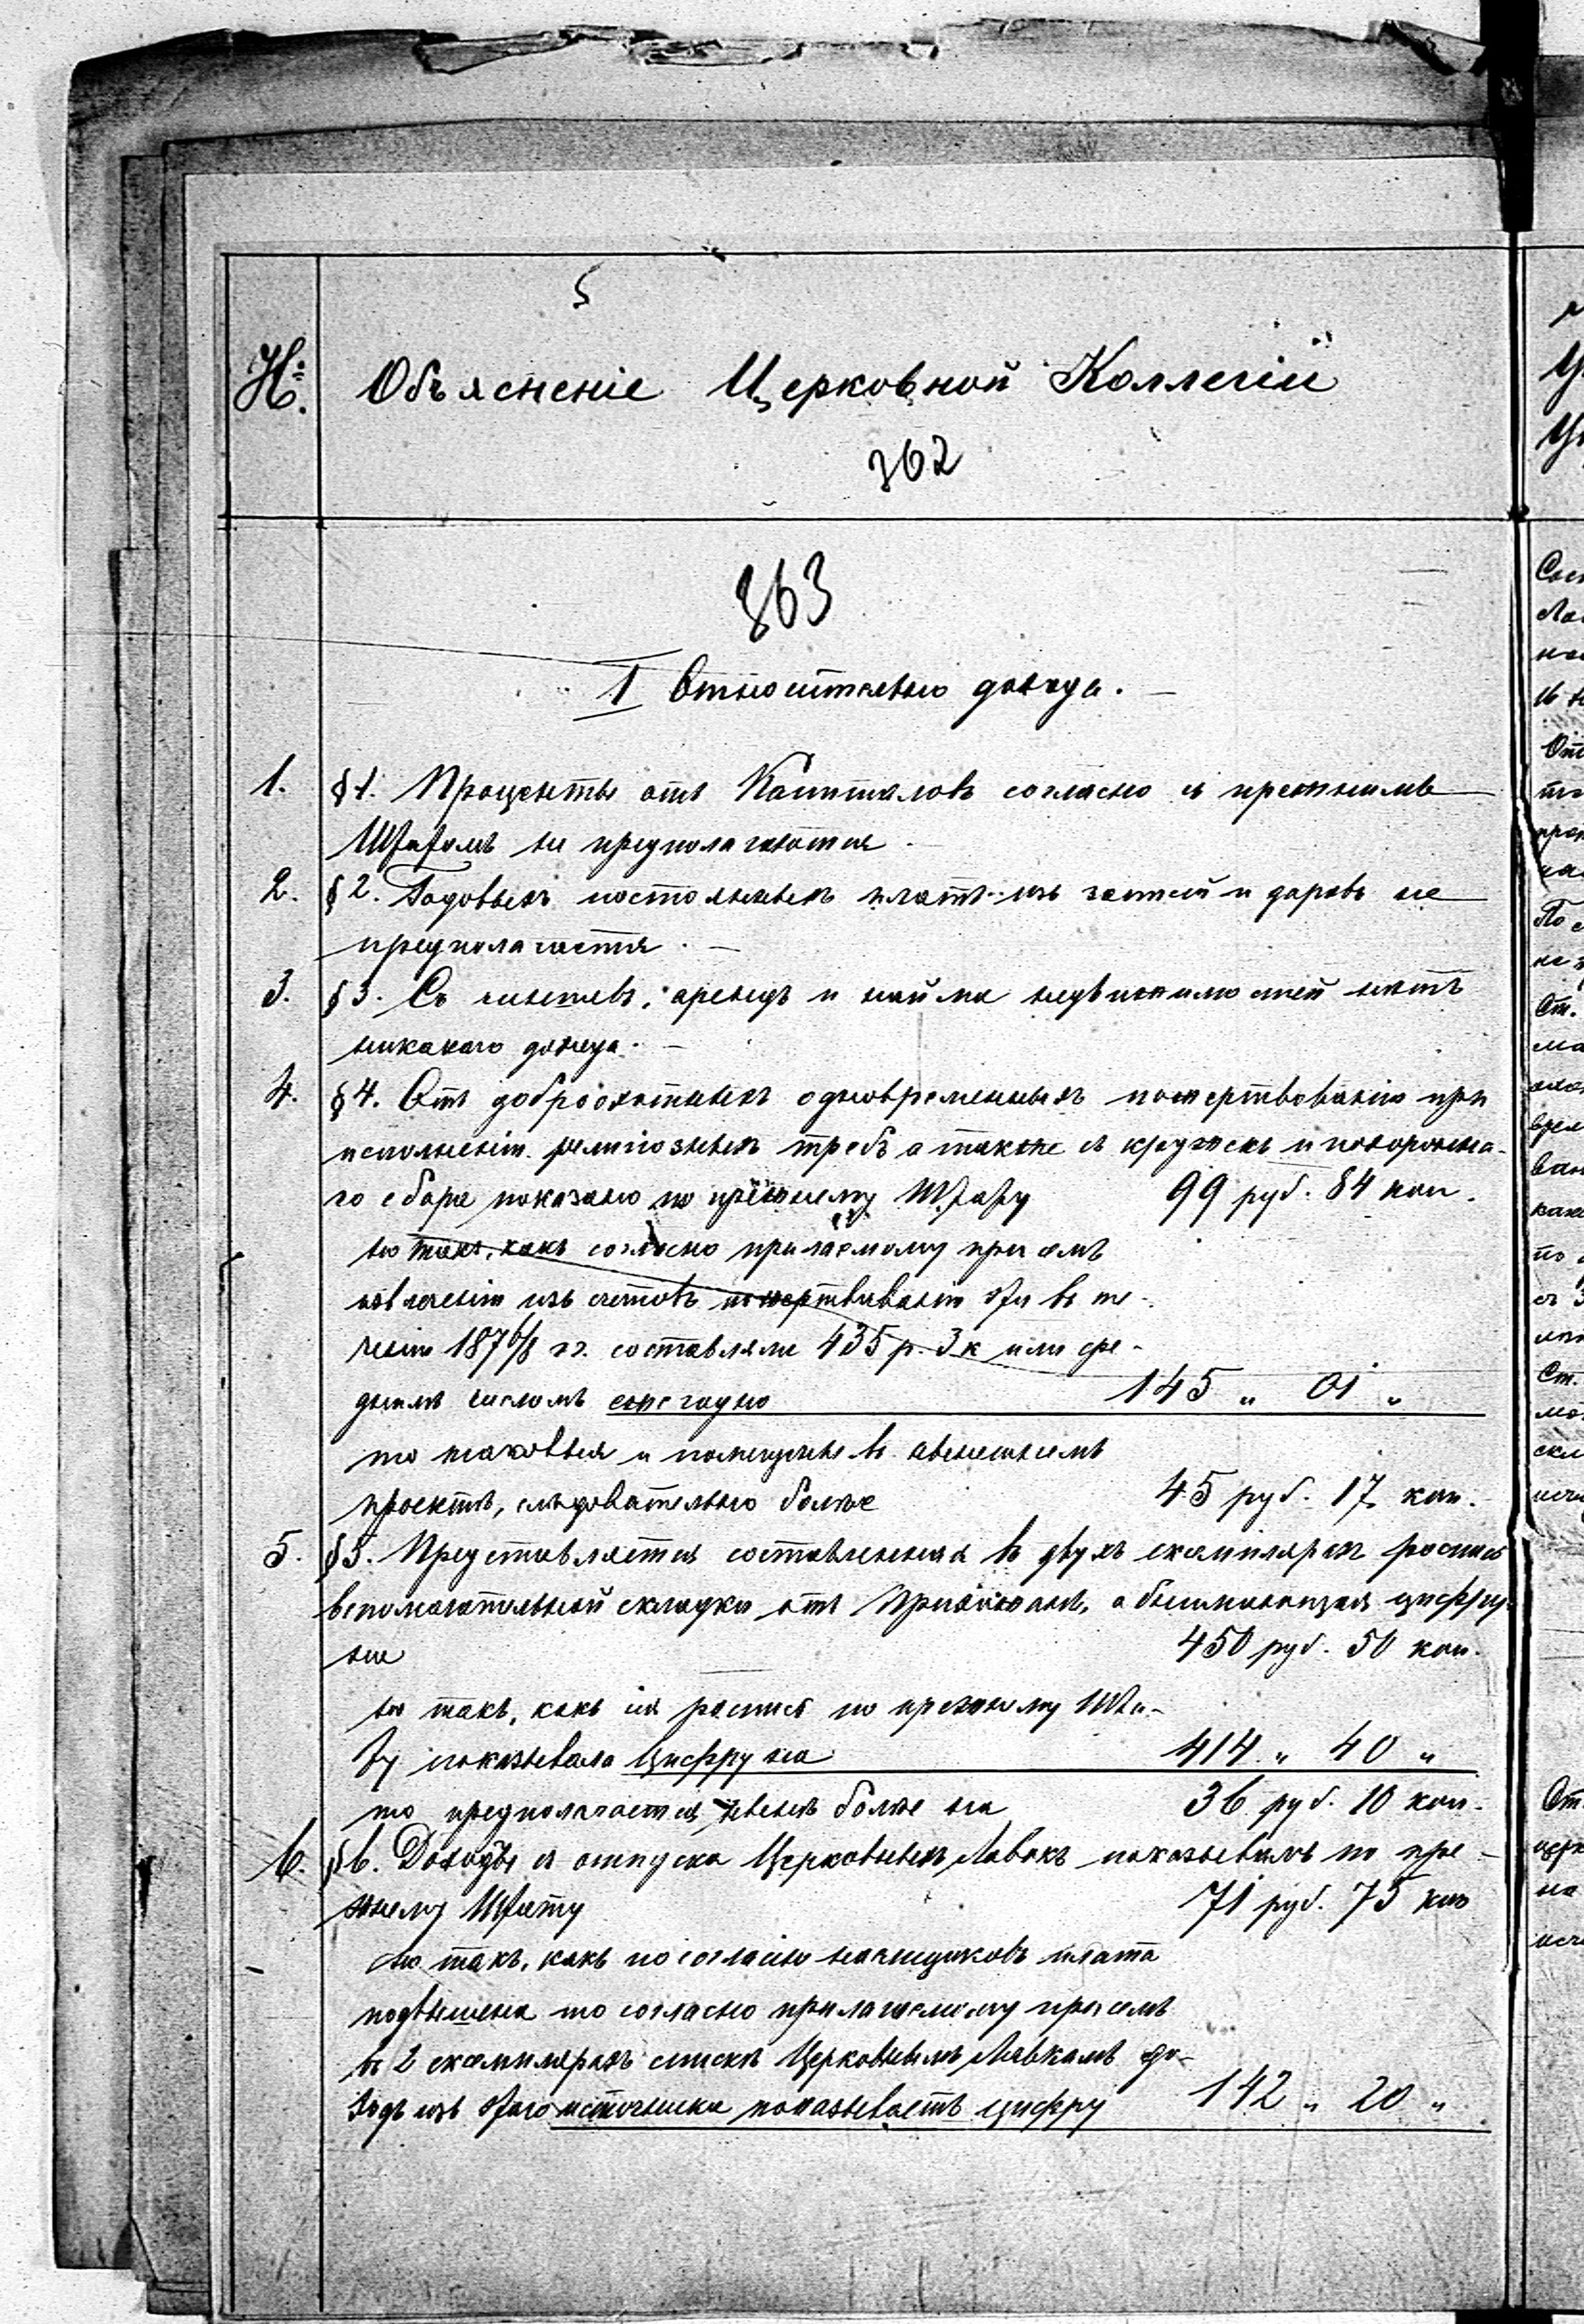 5
№. Объясненіе Церковной Коллегіи
362
363
I Относительно дохода.
1. §1. Проценты отъ Капиталовъ согласно съ прежнимъ
Штатомъ не предполагаются
2. §2. Годовыхъ постоянныхъ платъ изъ зат​ей и даровъ не
предполагается.
3. §3. Съ чиншевъ, арендъ и найма недвижимостей нетъ
никакого дохода.
4. §4. Отъ доброохотныхъ одновременныхъ пожертвованію при
исполненіи религіозныхъ требъ а также съ кружекъ и похоронна-
го сбора показано по прежнему Штату 99 руб. 84 коп.
но такъ, какъ согласно прилагаемому при семъ
извлеченію изъ счетовъ пожертвованія эти въ те-
ченіи 1876/8 гг. составляли 435 р. 3 к или сре-
днимъ числомъ ежегодно 145 „ 01 „
то таковыя и помещены въ нынешнемъ
проекте, следовательно более 45 руб. 17 коп.
5. §5. Представляется составленная въ двухъ екземплярахъ роспись
вспомогательной складки отъ Прихожанъ, обнимающая цифру
на 450 руб. 50 коп.
но такъ, какъ сія роспись по прежнему Шта-
ту показывала Цифру на 414 „ 40 „
то предполагается ныне более на 36 руб. 10 коп.
6. §6. Доходы съ отпуска Церковныхъ Лавокъ показывалъ по пре-
жнему Штату 71 руб. 75 коп
но такъ, какъ по согласію наемщиковъ плата
подвышена то согласно прилагаемому при семъ
въ 2 екземплярахъ списке Церковнымъ Лавкамъ до-
ходъ изъ этаго источника показываетъ цифру 142 „ 20 „